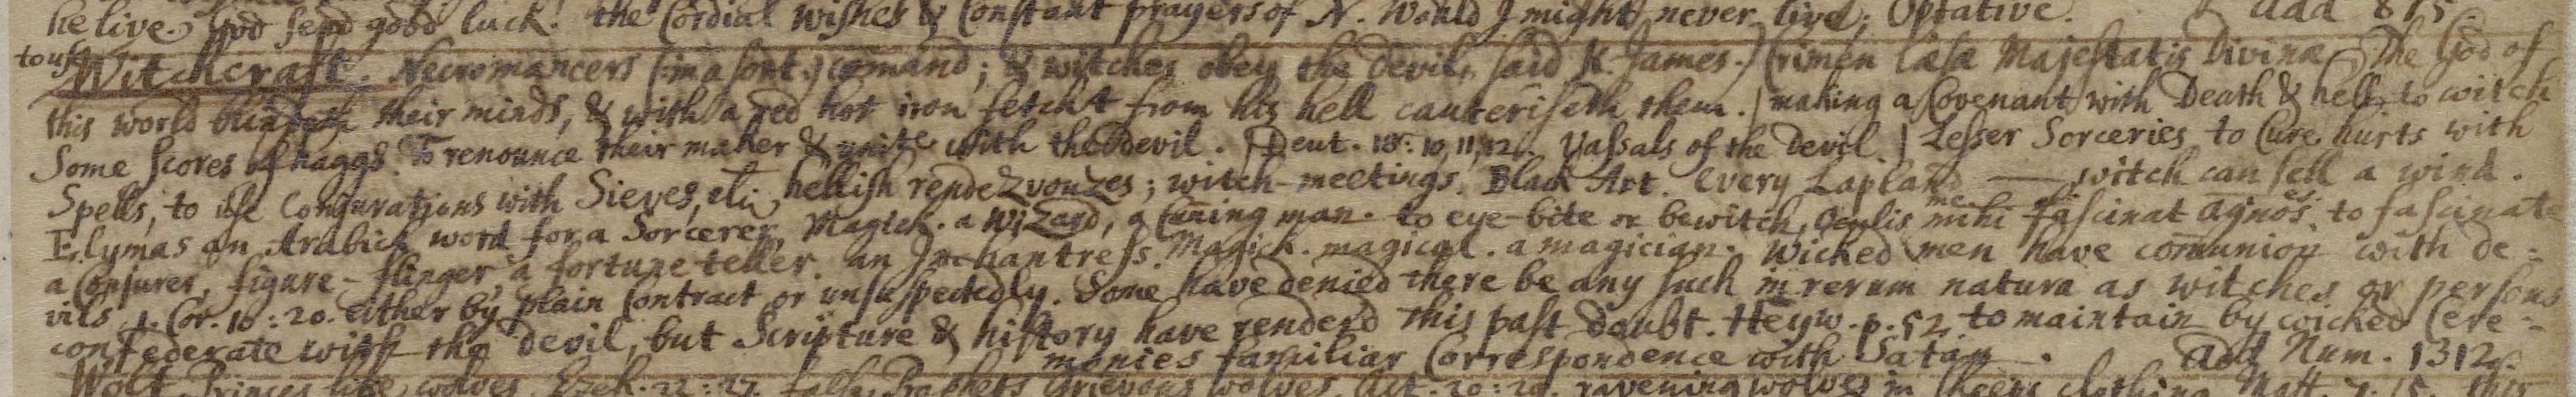 he live. God send good luck! the Cordial wishes & Constant prayers of N. Would I might never live; Optative. add 815.
to use
Witchcraft. Necromancers (in a sort) comand; & witches obey the devil, said K. James. | Crimen læsæ Majestatis Divinæ. The God of
this world blindeth their minds, & with a red hot iron fetcht from his hell cauteriseth them. | making a Covenant with Death & hell, to witch
Some Scores of haggs. To renounce their maker & unite with the devil. | Deut. 18: 10, 11, 12. Vassals of the devil. | Lesser Sorceries to Cure hurts with
Spells, to use Conjurations with Sieves, etc, hellish rendezvouzes; witch-meetings. Black Art. Every Lapland —— witch can sell a wind.
Elymas an Arabick word for a Sorcerer, Magick. a Wizard, a Cuning man. to eye-bite or bewitch, Oculis mihi fascinat agnos. to fascinate
me os
a Conjurer, figure-flinger, a fortune teller. an Inchantress. Magick. magical. a magician. Wicked men have comunion with de-
vils. 1. Cor. 10: 20. Either by plain Contract or unsuspectedly. Some have denied there be any such in rerum natura as witches or persons
confederate with the devil, but Scripture & history have renderd this past doubt. Heyw. p. 52 to maintain by wicked Cere-
monies familiar Correspondence with Satan. Add Num. 1312.
Wolf. Princes like wolves. Ezek. 22: 27. false Prophets grievous wolves. Act. 20: 29. ravening wolves in sheeps clothing Matt. 7. 15. this